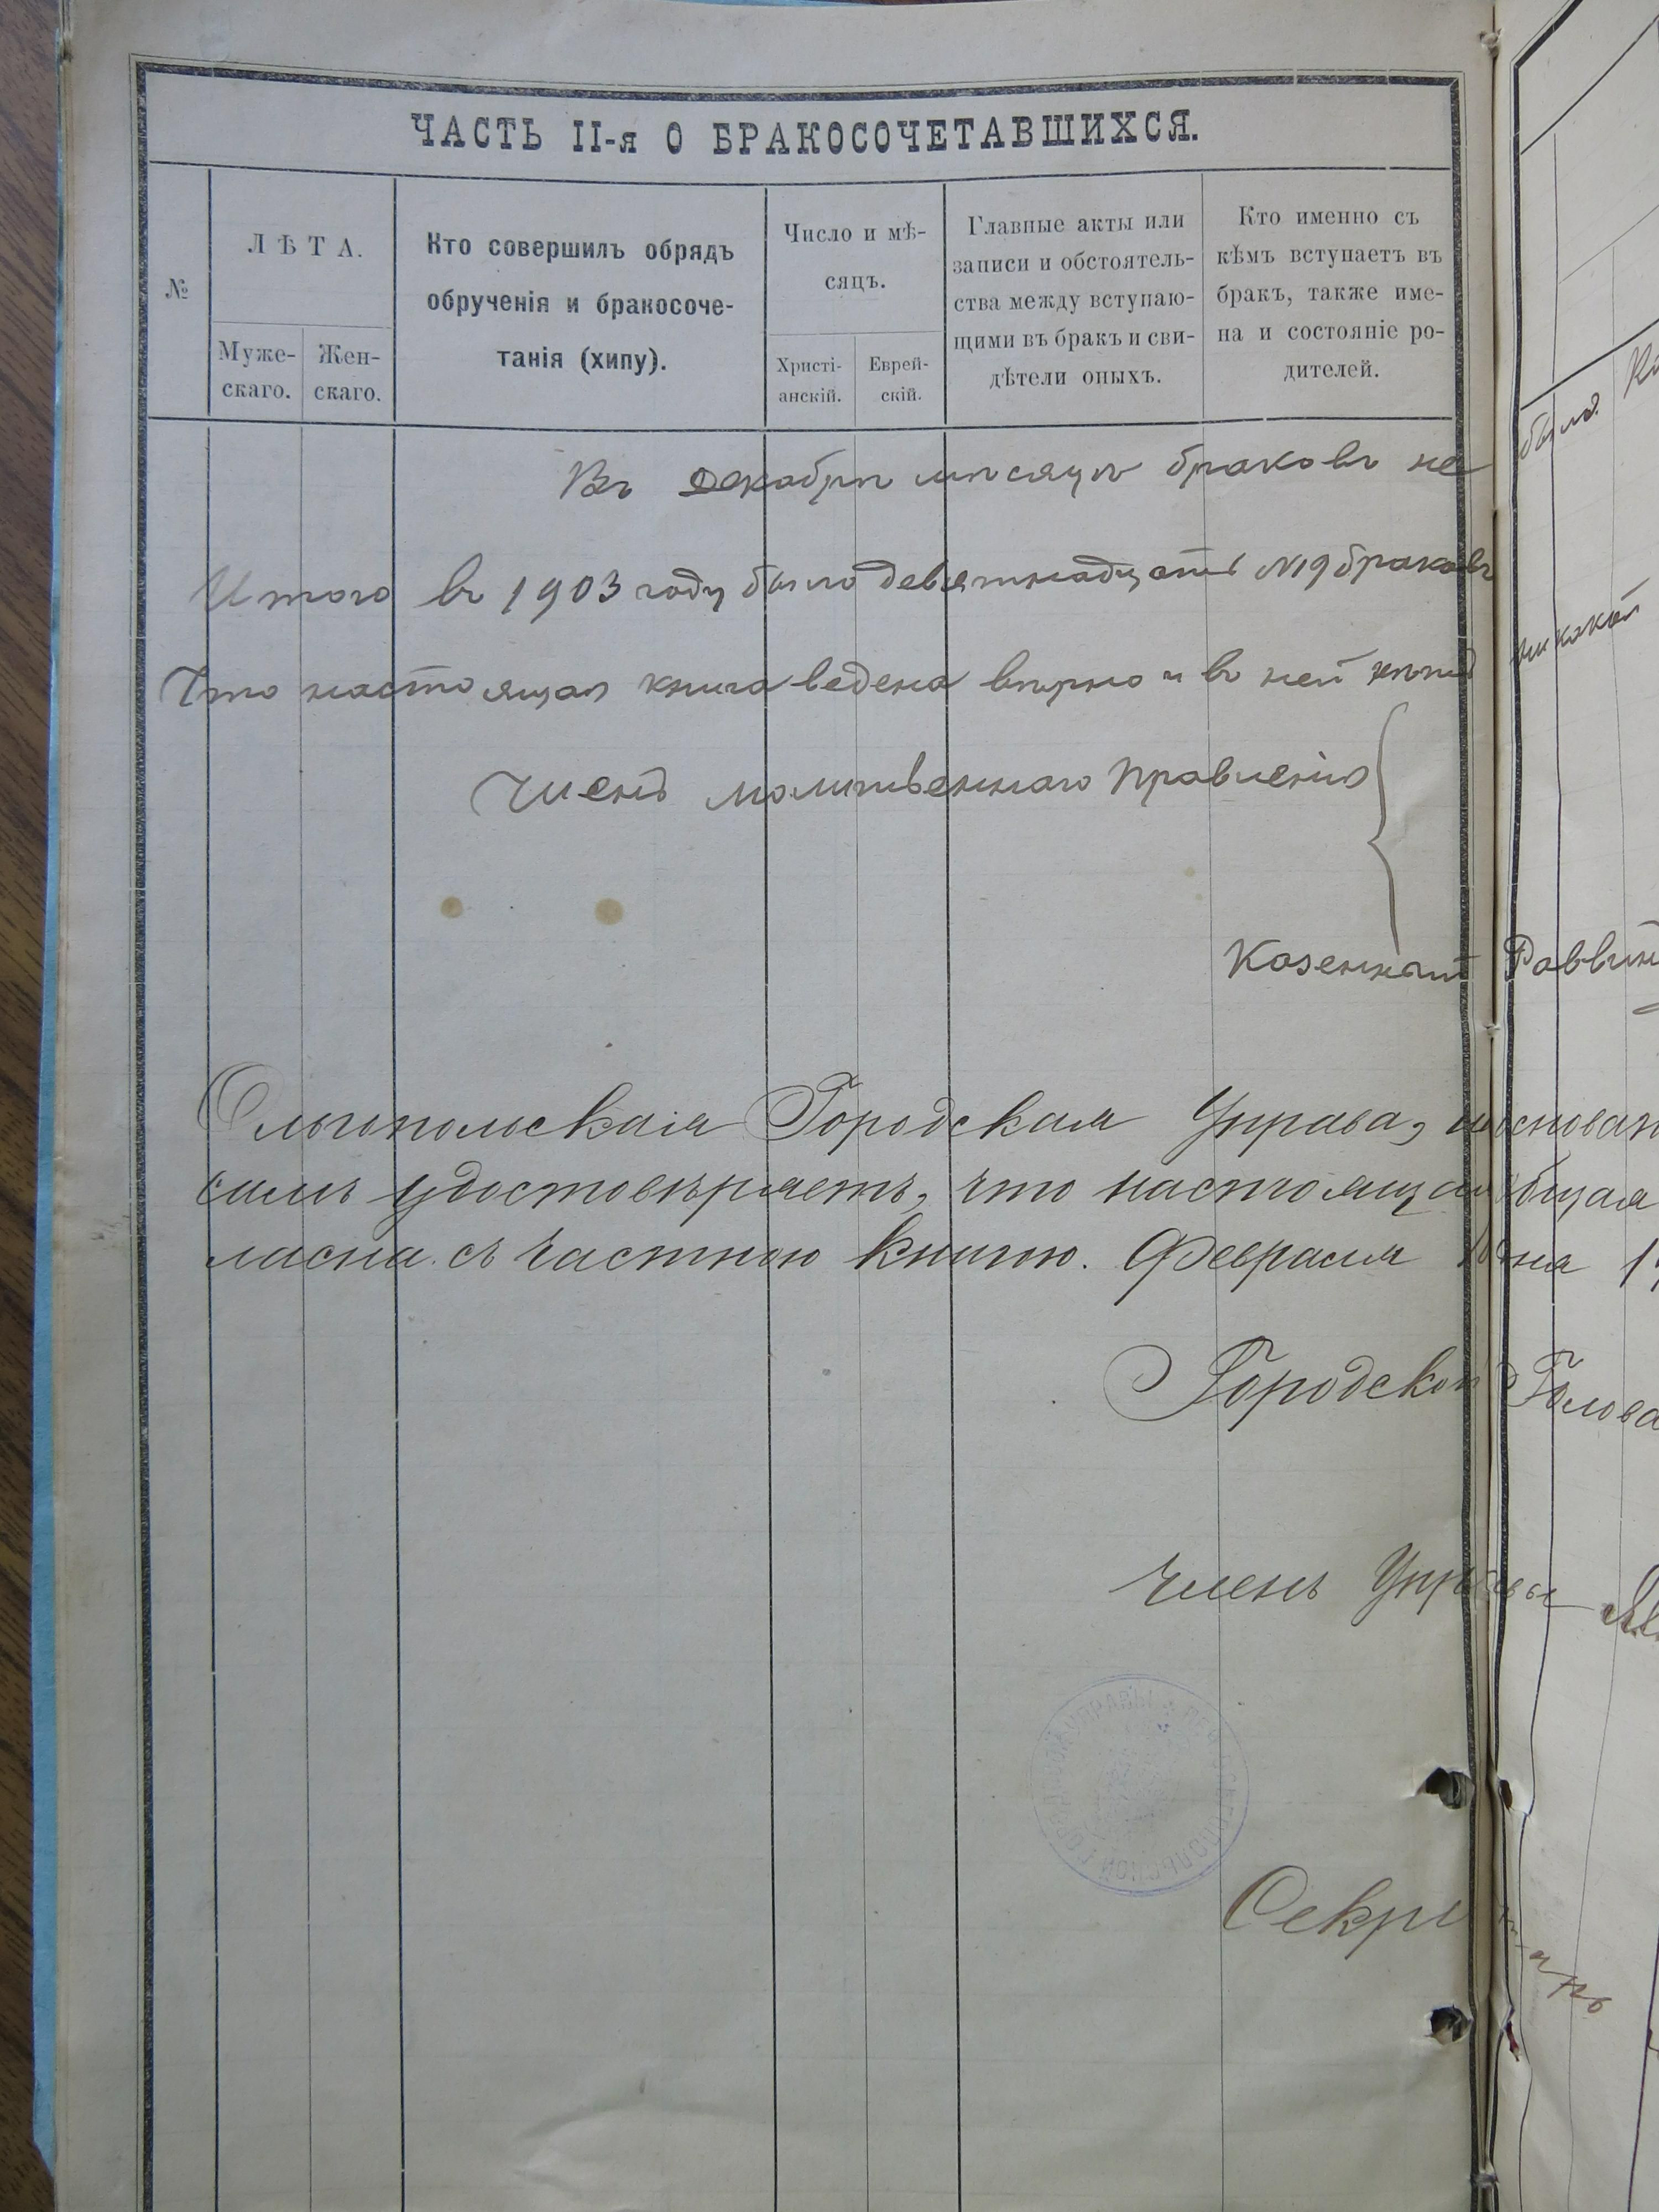 ЧАСТЬ II-я О БРАКОСОЧЕТАВШИХСЯ.
№
ЛѢТА.
Муже-
скаго.
Жен-
скаго.
Кто совершилъ обрядъ
обрученія и бракосоче-
танія (хипу).
Число и мѣ-
сяцъ.
Христі-
анскій.
Еврей-
скій.
Главные акты или
записи и обстоятель-
ства между вступаю-
щими въ бракъ и сви-
дѣтели оныхъ.
Кто именно съ
кѣмъ вступаетъ въ
бракъ, также име-
на и состояніе ро-
дителей.
Въ Декабрѣ мѣсяцѣ браковъ не было
Итого въ 1903 году было девятнадцать №19 браковъ
Что настоящая книга ведена вѣрно и въ ней нѣтъ никакой
Членъ молитвеннаго Правленія
Казенный Раввин
Ольгопольская Городская Управа, на основан
симъ удостовѣряетъ, что настоящая общая
ласна съ частною книгою. Февраля дня 1
Городской Голова
Членъ Управы
Секретарь